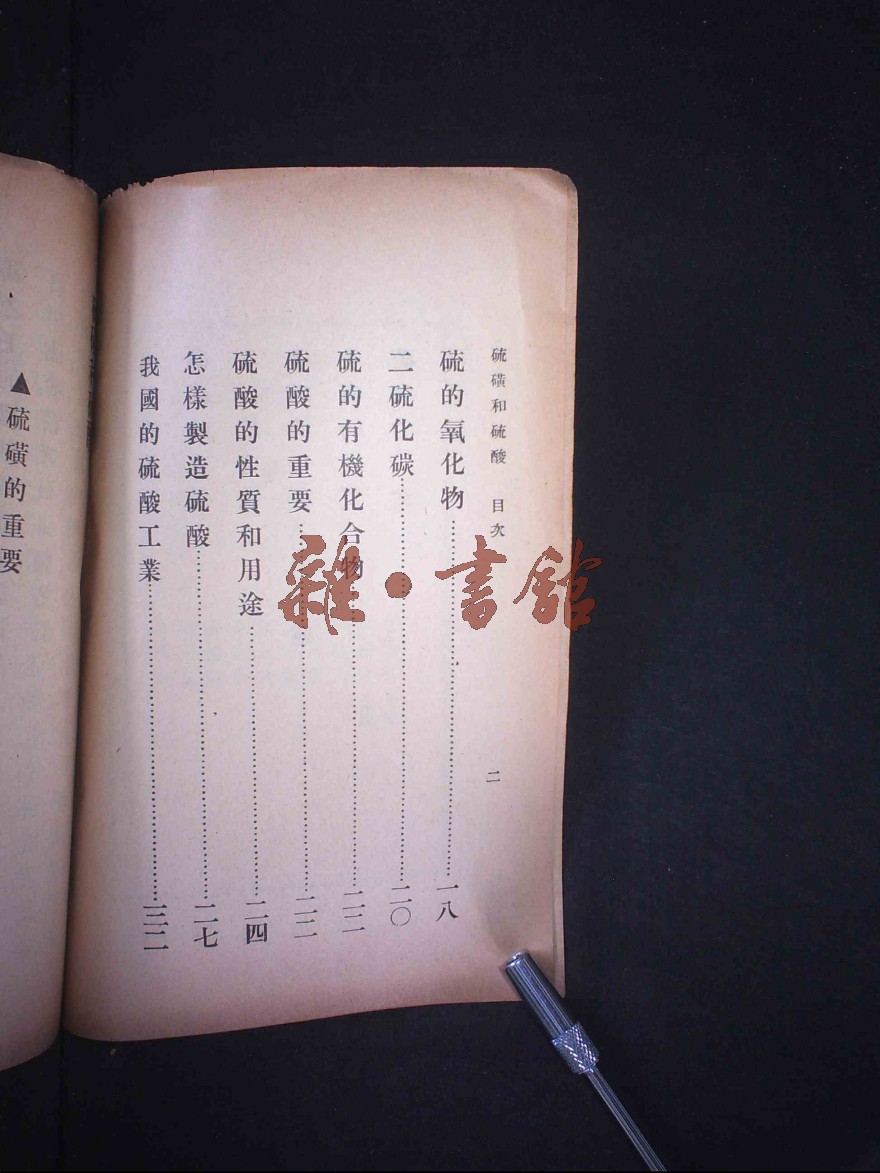 硫磺和硫酸　目次　二
硫的氧化物……一八
二硫化碳……二〇
硫的有機化合物……二二
硫酸的重要……二二
硫酸的性質和用途……二四
怎樣製造硫酸……二七
我國的硫酸工業……三二
▲硫磺的重要
雜·書館